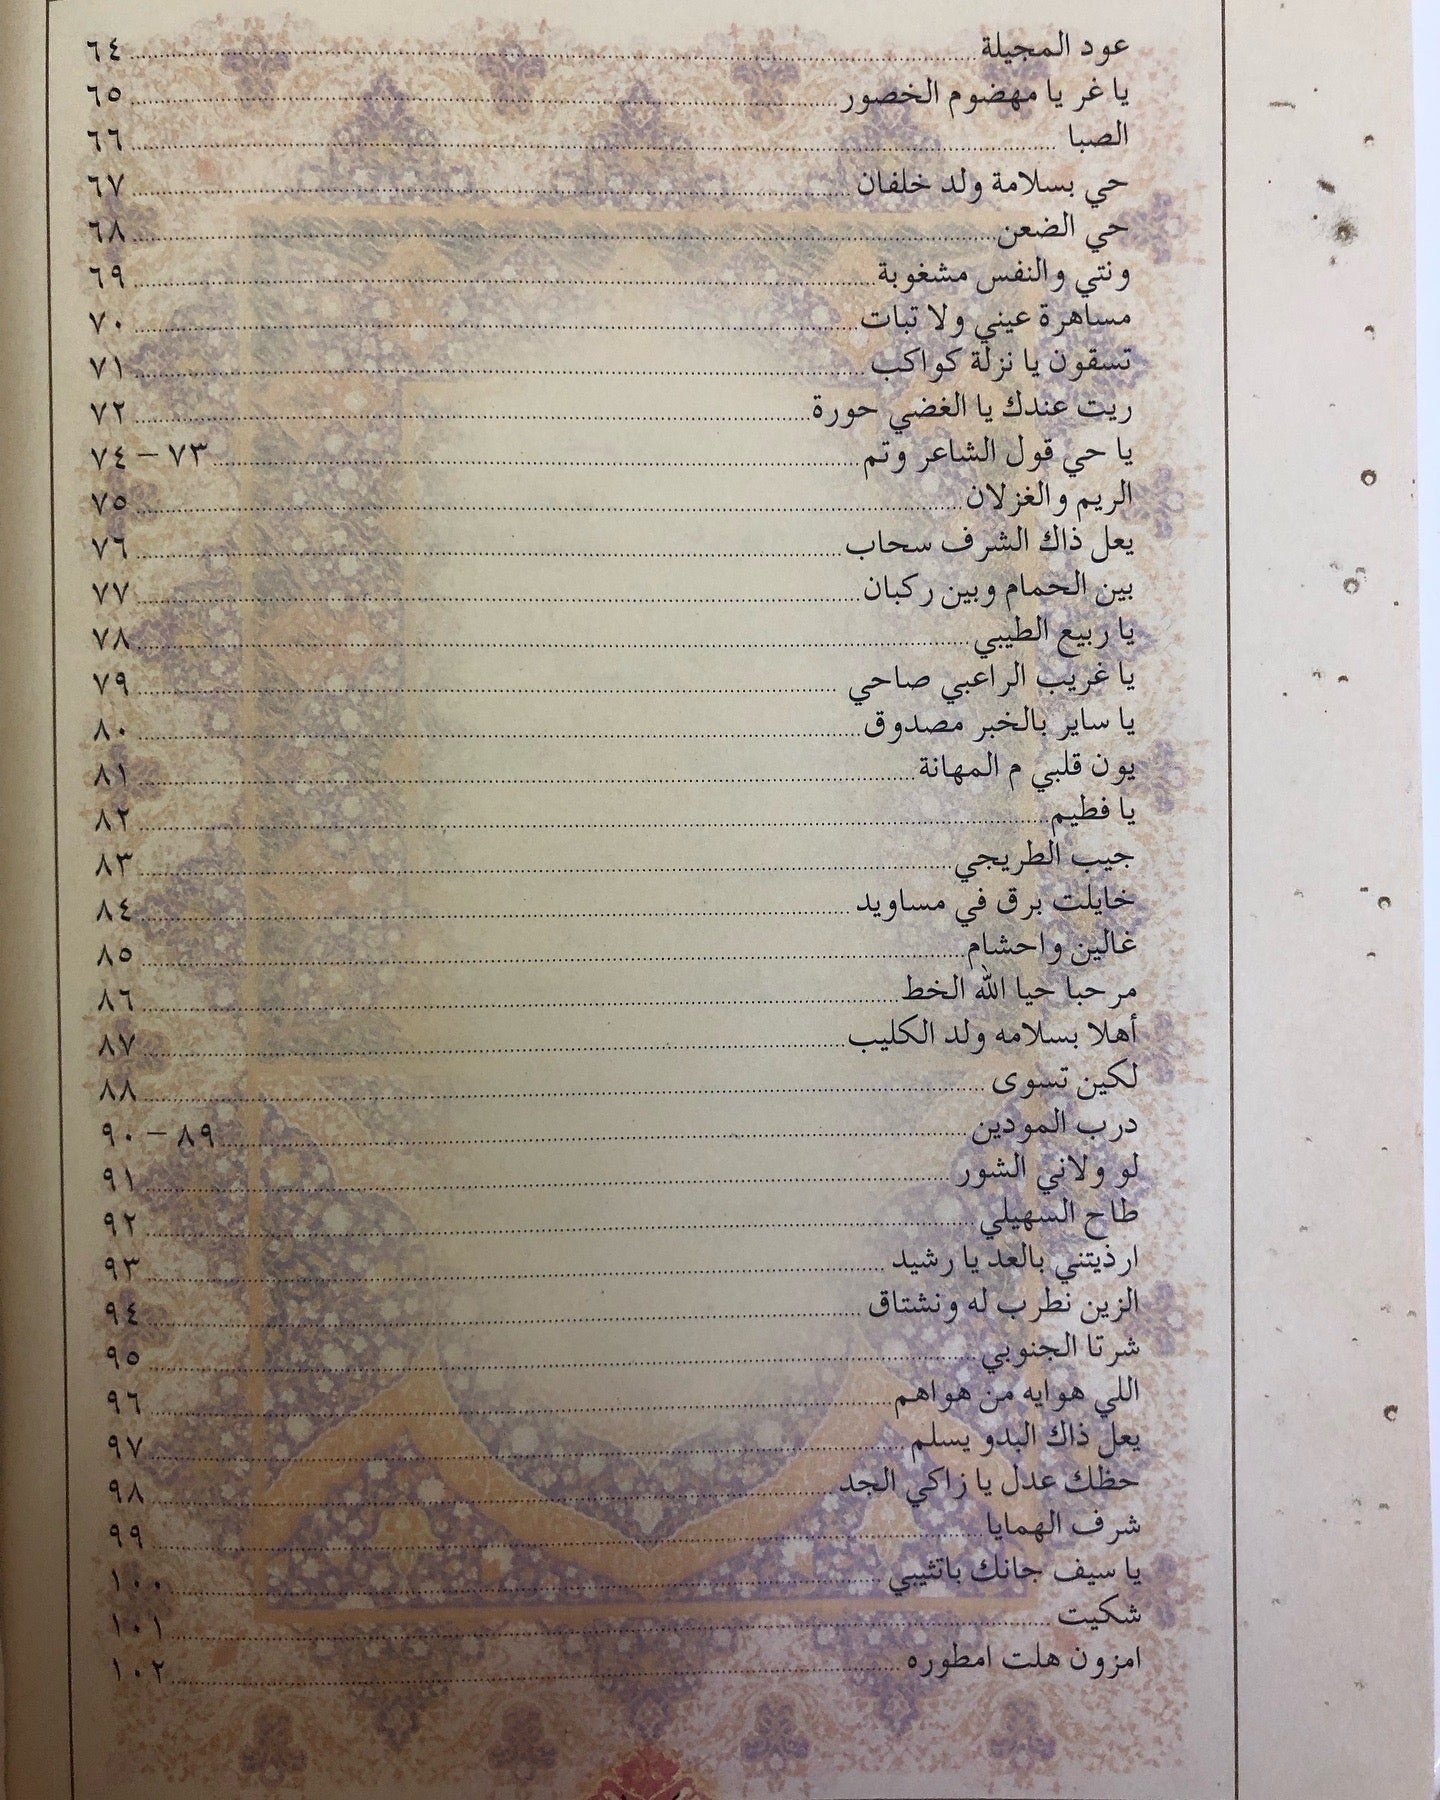 عود المجيلة ٦٤
يا غر يا مهضوم الخصور ٦٥
الصبا ٦٦
حي بسلامة ولد خلفان ٦٧
حي الضعن ٦٨
ونتي والنفس مشغوبة ٦٩
مساهرة عيني ولا تبات ٧٠
تسقون يا نزلة كواكب ٧١
ريت عندك يا الغضي حورة ٧٢
يا حي قول الشاعر وتم ٧٣ – ٧٤
الريم والغزلان ٧٥
يعل ذاك الشرف سحاب ٧٦
بين الحمام وبين ركبان ٧٧
يا ربيع الطيبي ٧٨
يا غريب الراعبي صاحي ٧٩
يا ساير بالخبر مصدوق ٨٠
يون قلبي م المهانة ٨١
يا فطيم ٨٢
جيب الطريجي ٨٣
خايلت برق في مساويد ٨٤
غالين واحشام ٨٥
مرحبا حيا الله الخط ٨٦
أهلا بسلامه ولد الكليب ٨٧
لكين تسوى ٨٨
درب المودين ٨٩ – ٩٠
لو ولاني الشور ٩١
طاح السهيلي ٩٢
ارذيتني بالعد يا رشيد ٩٣
الزين نطرب له ونشتاق ٩٤
شرتا الجنوبي ٩٥
اللي هوايه من هواهم ٩٦
يعل ذاك البدو يسلم ٩٧
حظك عدل يا زاكي الجد ٩٨
شرف الهمايا ٩٩
يا سيف جانك باتثيبي ١٠٠
شكيت ١٠١
امزون هلت امطوره ١٠٢